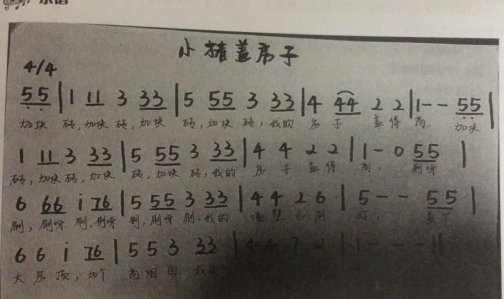 乐谱
小猪盖房子
4/4
55 | 1 11 3 33 | 5 55 3 33 | 4 44 2 2 | 1 - - 55 |
加块 砖,加块 砖,加块 砖,加块 砖,我的 房子 盖得 高 加块
1 11 3 33 | 5 55 3 33 | 4 4 2 2 | 1 - 0 55 |
砖,加块 砖,加块 砖,加块 砖,我的 房子 盖得 高, 刷呀
6 66 i 76 | 5 55 3 33 | 4 4 2 6 | 5 - - 55 |
刷,刷呀 刷,刷呀 刷,刷呀 刷,我的
6 6 i 76 | 5 5 3 33 | 4 4 2 2 | 1 - - - ||
大房顶,加个